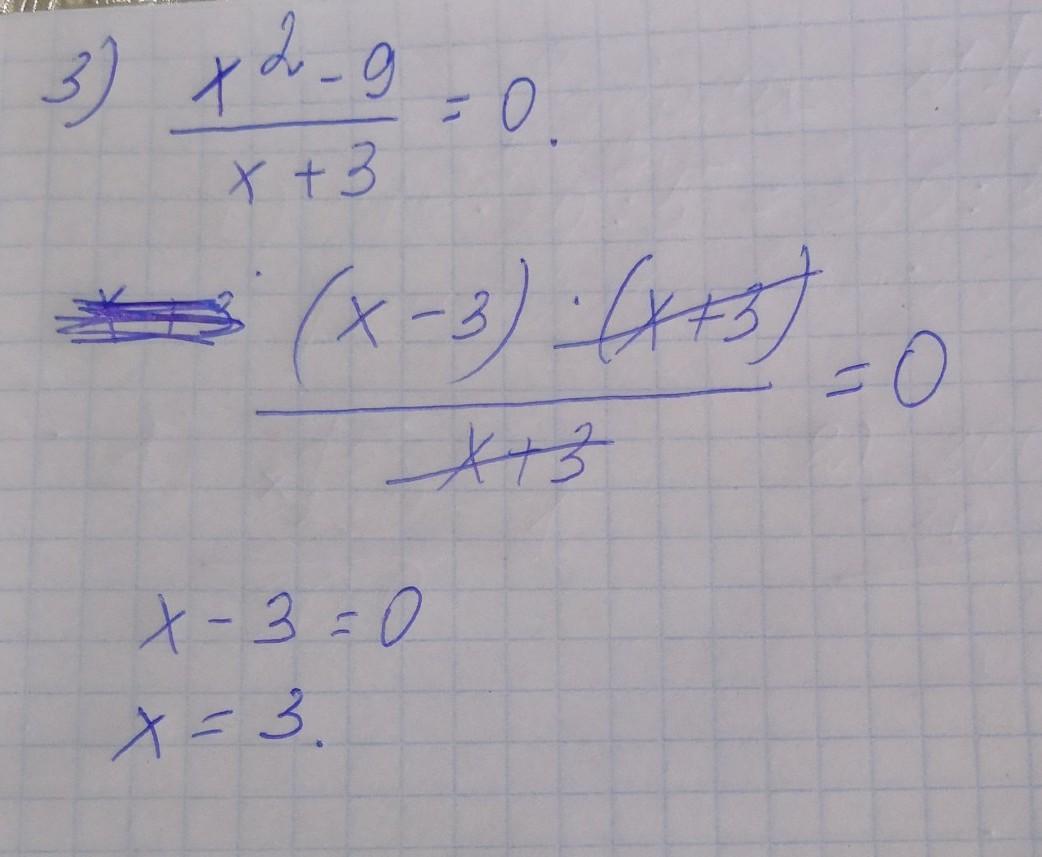 3) (x² - 9)/(x + 3) = 0.
((x - 3) · (x + 3))/(x + 3) = 0
x - 3 = 0
x = 3.